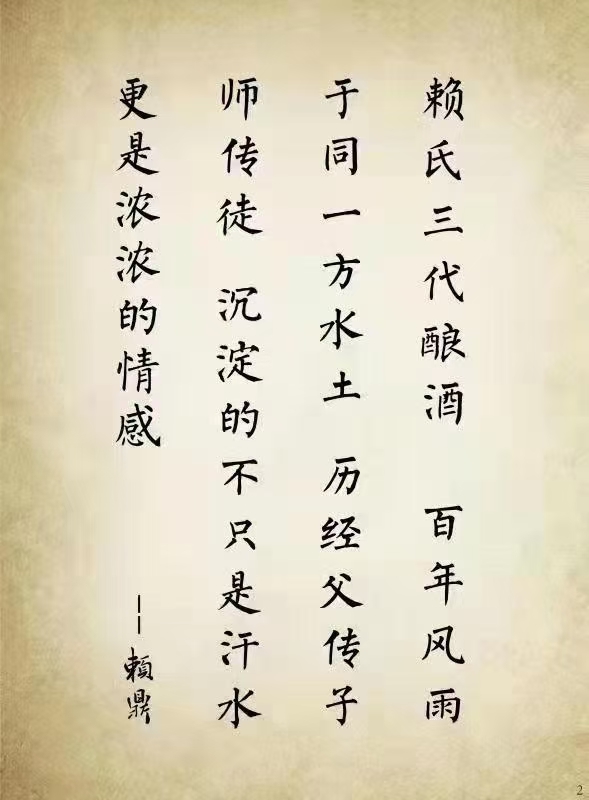 赖氏三代酿酒 百年风雨
于同一方水土 历经父传子
师传徒 沉淀的不只是汗水
更是浓浓的情感
——賴鼎
2